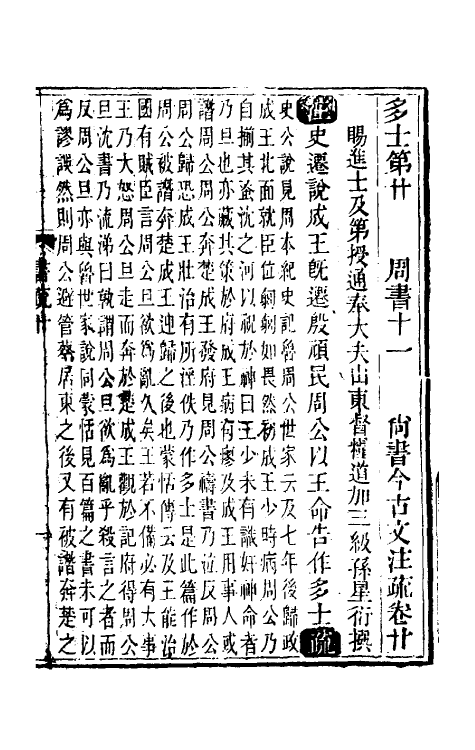 多士第廿　周書十一　尚書今古文注疏卷廿
賜進士及第授通奉大夫山東督糧道加三級孫星衍撰
注 史遷說成王旣遷殷頑民周公以王命告作多士 疏
史公說見周本紀史記魯周公世家云及七年後歸政
成王北面就臣位匔匔如畏然初成王少時病周公乃
自揃其蚤沈之河以祝於神曰王少未有識奸神命者
乃旦也亦藏其策於府成王病有瘳及成王用事人或
譖周公周公奔楚成王發府見周公禱書乃泣反周公
周公歸恐成王壯治有所淫佚乃作多士是此篇作於
周公被譖奔楚成王迎歸之後也蒙恬傳云及王能治
國有賊臣言周公旦欲爲亂久矣王若不備必有大事
王乃大怒周公旦走而奔於楚成王觀於記府得周公
旦沈書乃流涕曰孰謂周公旦欲爲亂乎殺言之者而
反周公旦亦與魯世家說同蒙恬見百篇之書未可以
爲謬誤然則周公避管蔡居東之後又有被譖奔楚之